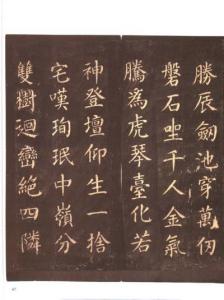 勝辰劍池穿萬仞
磐石坐千人金氣
騰為虎琴臺化若
神登壇仰生一捨
宅嘆珣珉中嶺分
雙樹迴巒絕四隣